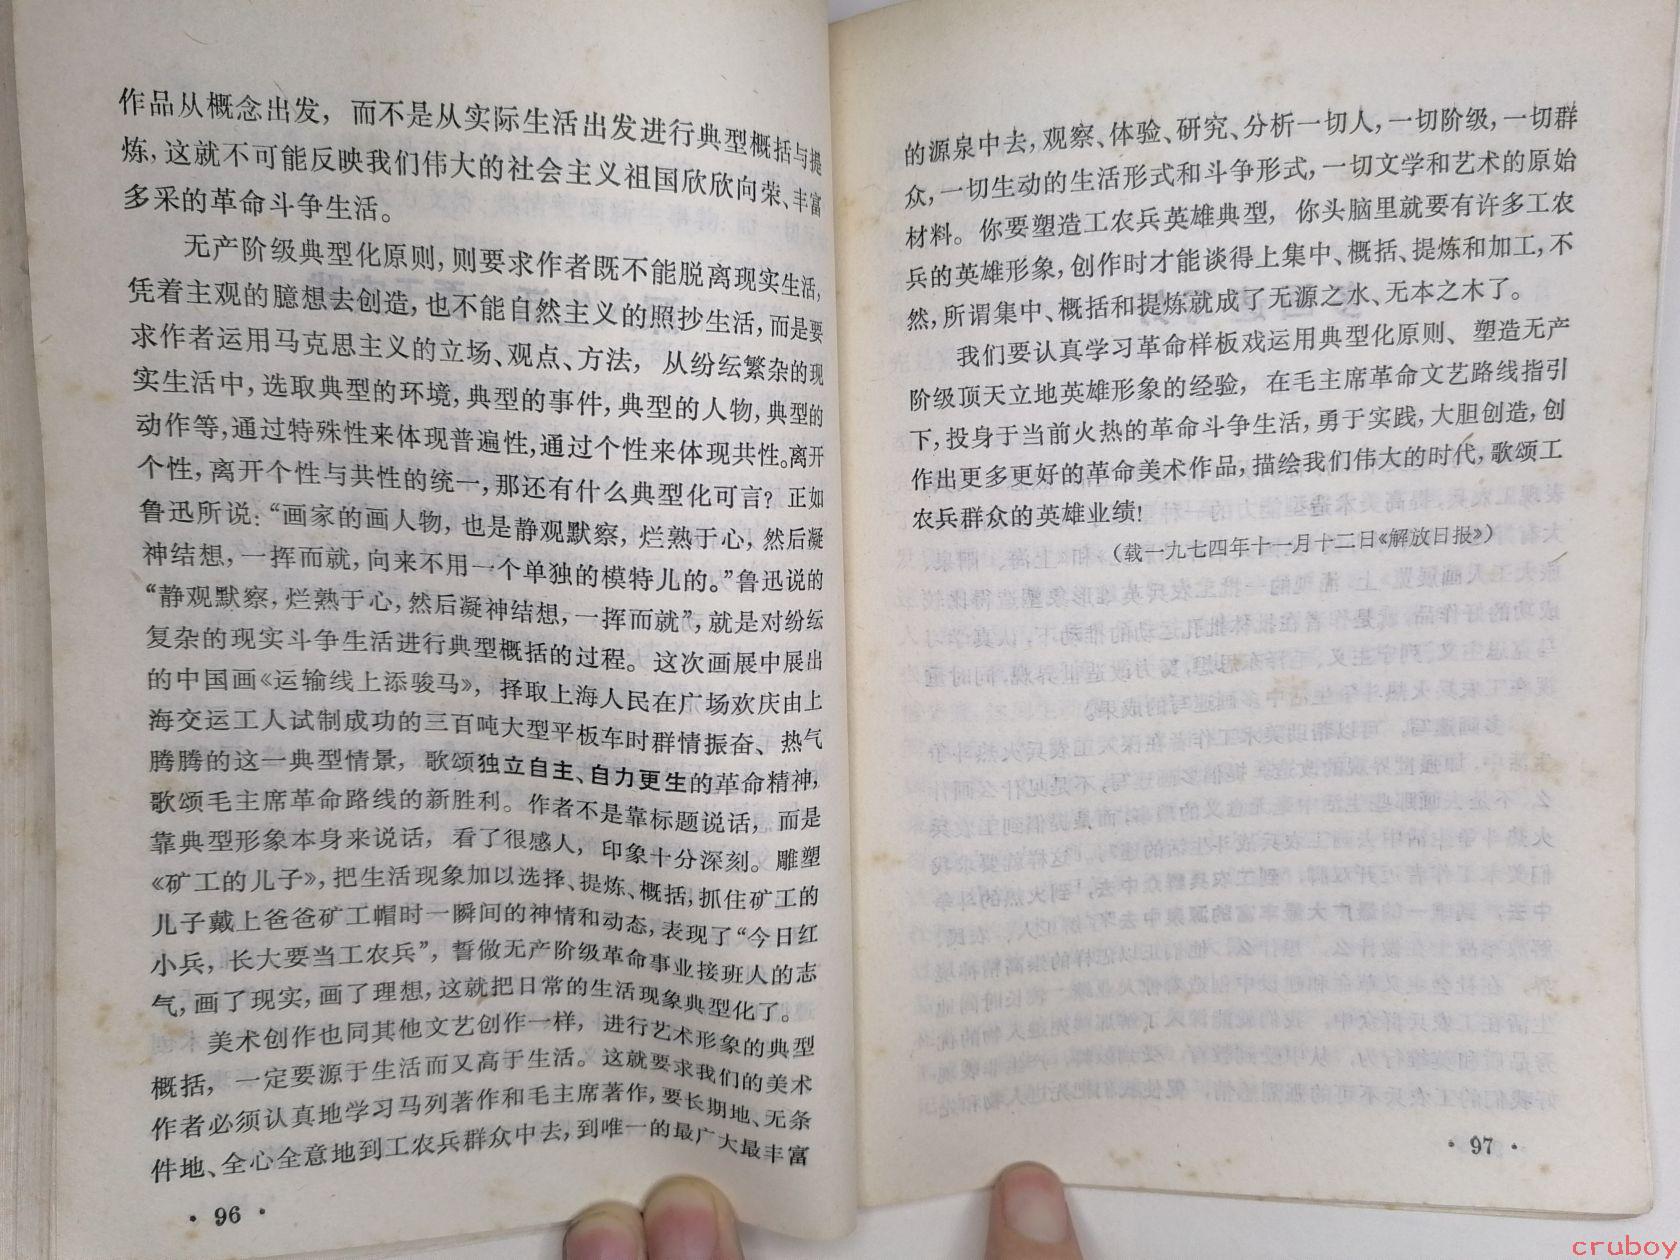 作品从概念出发，而不是从实际生活出发进行典型概括与提
炼，这就不可能反映我们伟大的社会主义祖国欣欣向荣、丰富
多采的革命斗争生活。
无产阶级典型化原则，则要求作者既不能脱离现实生活，
凭着主观的臆想去创造，也不能自然主义的照抄生活，而是要
求作者运用马克思主义的立场、观点、方法，从纷纭繁杂的现
实生活中，选取典型的环境，典型的事件，典型的人物，典型的
动作等，通过特殊性来体现普遍性，通过个性来体现共性。离开
个性，离开个性与共性的统一，那还有什么典型化可言？正如
鲁迅所说：“画家的画人物，也是静观默察，烂熟于心，然后凝
神结想，一挥而就，向来不用一个单独的模特儿的。”鲁迅说的
“静观默察，烂熟于心，然后凝神结想，一挥而就”，就是对纷纭
复杂的现实斗争生活进行典型概括的过程。这次画展中展出
的中国画《运输线上添骏马》，择取上海人民在广场欢庆由上
海交运工人试制成功的三百吨大型平板车时群情振奋、热气
腾腾的这一典型情景，歌颂独立自主、自力更生的革命精神，
歌颂毛主席革命路线的新胜利。作者不是靠标题说话，而是
靠典型形象本身来说话，看了很感人，印象十分深刻。雕塑
《矿工的儿子》，把生活现象加以选择、提炼、概括，抓住矿工的
儿子戴上爸爸矿工帽时一瞬间的神情和动态，表现了“今日红
小兵，长大要当工农兵”，誓做无产阶级革命事业接班人的志
气，画了现实，画了理想，这就把日常的生活现象典型化了。
美术创作也同其他文艺创作一样，进行艺术形象的典型
概括，一定要源于生活而又高于生活。这就要求我们的美术
作者必须认真地学习马列著作和毛主席著作，要长期地、无条
件地、全心全意地到工农兵群众中去，到唯一的最广大最丰富
· 96 ·
的源泉中去，观察、体验、研究、分析一切人，一切阶级，一切群
众，一切生动的生活形式和斗争形式，一切文学和艺术的原始
材料。你要塑造工农兵英雄典型，你头脑里就要有许多工农
兵的英雄形象，创作时才能谈得上集中、概括、提炼和加工，不
然，所谓集中、概括和提炼就成了无源之水、无本之木了。
我们要认真学习革命样板戏运用典型化原则、塑造无产
阶级顶天立地英雄形象的经验，在毛主席革命文艺路线指引
下，投身于当前火热的革命斗争生活，勇于实践，大胆创造，创
作出更多更好的革命美术作品，描绘我们伟大的时代，歌颂工
农兵群众的英雄业绩！
（载一九七四年十一月十二日《解放日报》）
· 97 ·
cruboy